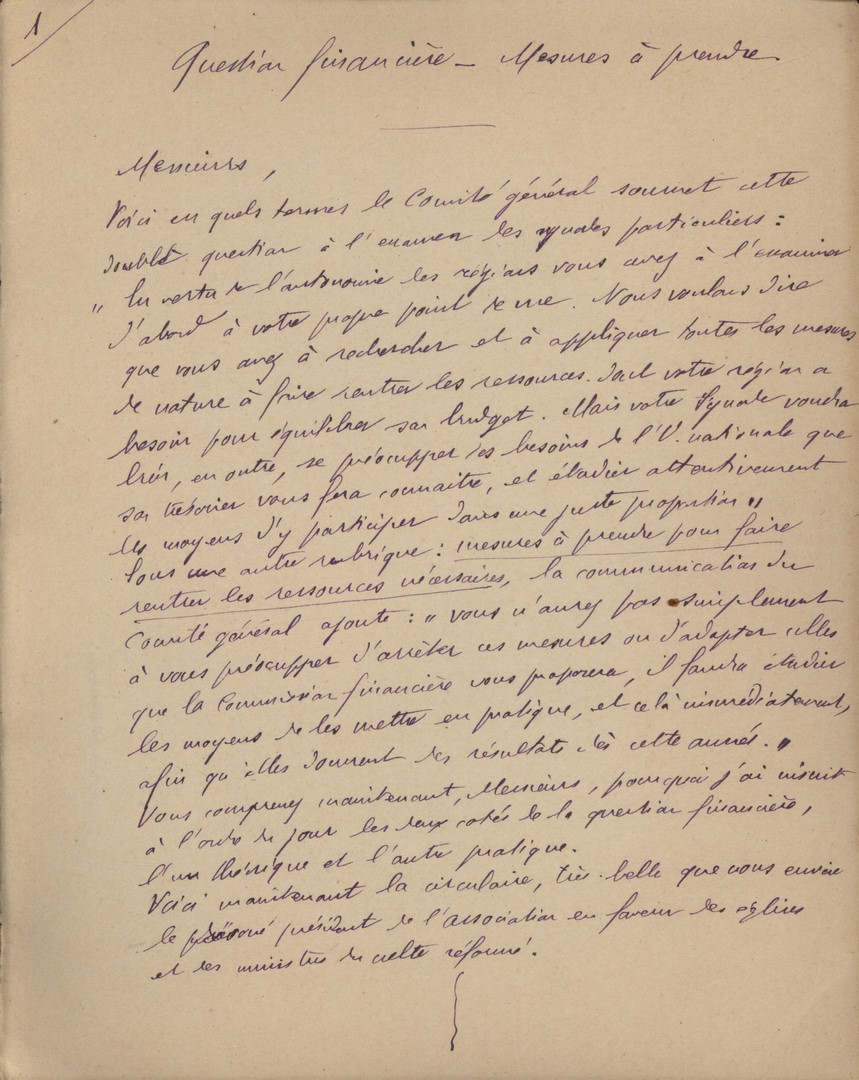 1
Question financière - Mesures à prendre
Messieurs,
Voici en quels termes le Comité général soumet cette
double question à l'examen des synodes particuliers :
" En vertu de l'autonomie des régions vous avez à l'examiner
d'abord à votre propre point de vue. Nous voulons dire
que vous avez à rechercher et à appliquer toutes les mesures
de nature à faire rentrer les ressources dont votre région a
besoin pour équilibrer son budget. Mais votre Synode voudra
bien, en outre, se préoccuper des besoins de l'U. nationale que
son trésorier vous fera connaître, et étudier attentivement
les moyens d'y participer dans une juste proportion "
Sous une autre rubrique : mesures à prendre pour faire
rentrer les ressources nécessaires, la communication du
Comité général ajoute : " vous n'aurez pas simplement
à vous préoccuper d'arrêter ces mesures ou d'adopter celles
que la Commission financière vous proposera, il faudra étudier
les moyens de les mettre en pratique, et cela immédiatement,
afin qu'elles donnent des résultats dès cette année. "
Vous comprenez maintenant, Messieurs, pourquoi j'ai inscrit
à l'ordre du jour les deux cotés de la question financière,
l'un théorique et l'autre pratique.
Voici maintenant la circulaire, très belle que nous envoie
le président de l'association en faveur des églises
et des ministres du culte réformé.